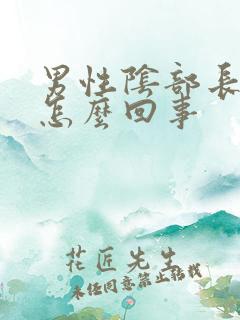 男性陰部長
怎麼回事
花匠先生
未经同意禁止转载